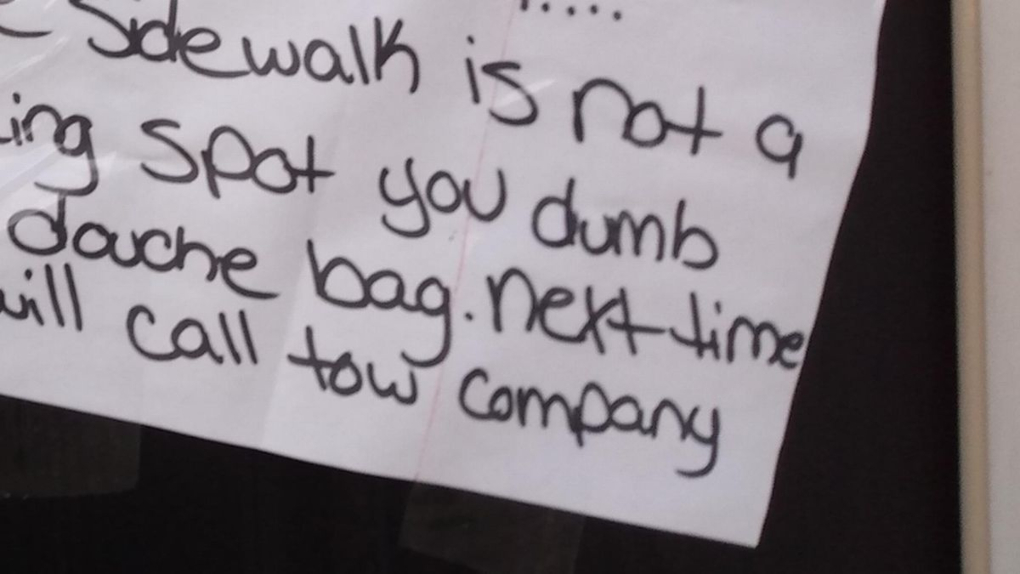 .....
Sidewalk is not a
ing spot you dumb
douche bag. next time
will call tow company